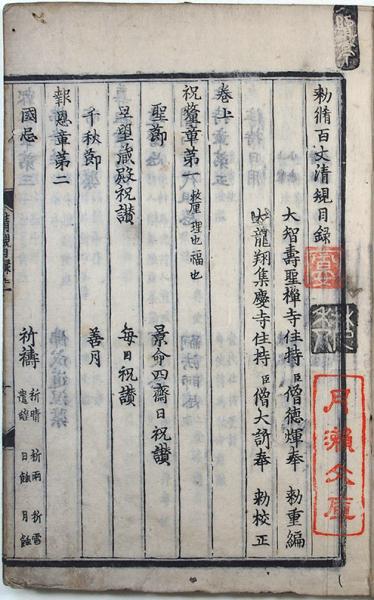 勅脩百丈清規目録
大智壽聖禅寺住持臣僧德煇奉 勅重編
大龍翔集慶寺住持臣僧大訢奉 勅校正
卷上
祝釐章第一 釐理也福也
聖節 景命四齋日祝讃
旦望藏殿祝讃 每日祝讃
千秋節 善月
報恩章第二
國忌 祈禱 祈晴 祈雨 祈雪 遣蝗 日蝕 月蝕
月瀬文庫